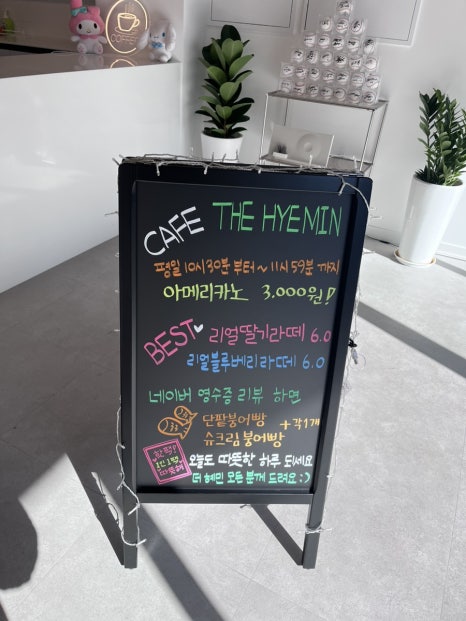 COFFEE
CAFE THE HYEMIN
평일 10시30분 부터 ~ 11시 59분 까지
아메리카노 3.000원!
BEST♥ 리얼딸기라떼 6.0
리얼블루베리라떼 6.0
네이버 영수증 리뷰 하면
단팥붕어빵 +각1개
슈크림붕어빵
오늘도 따뜻한 하루 되세요
더 혜민 모든 분께 드려요 :)